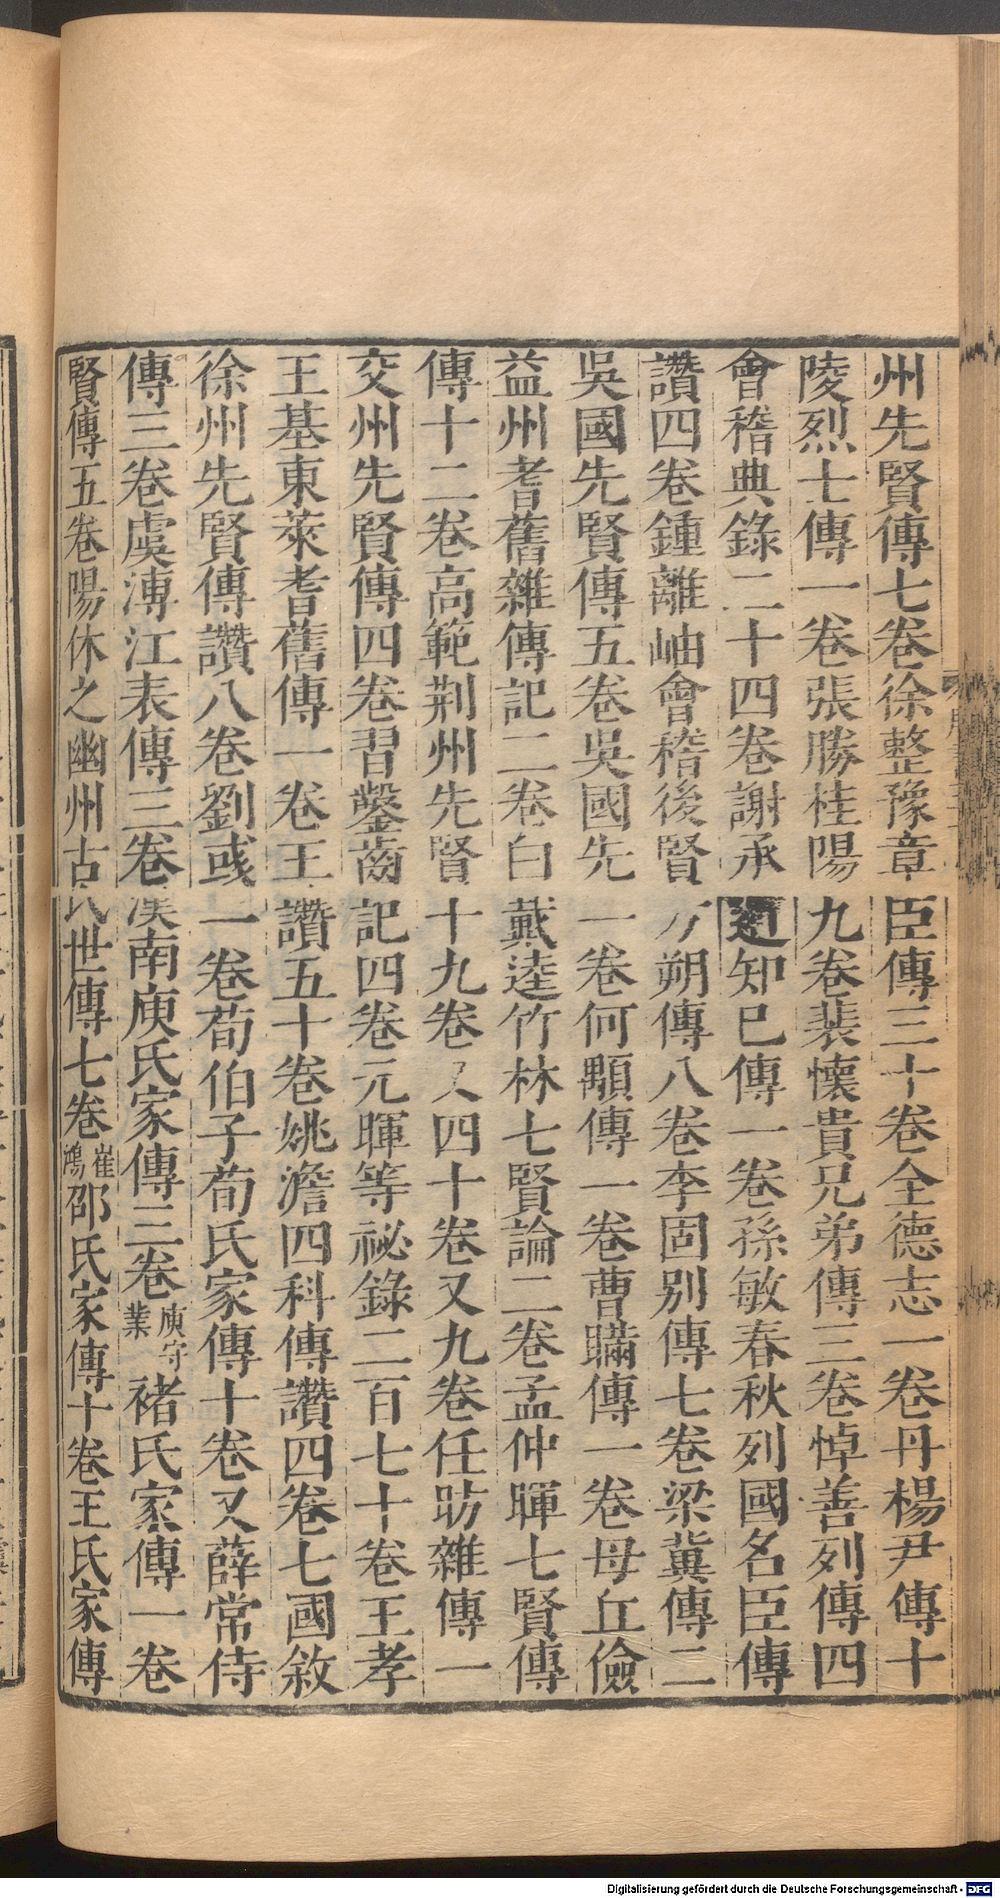 州先賢傳七卷徐整豫章臣傳三十卷全德志一卷丹楊尹傳十
陵烈士傳一卷張勝桂陽九卷裴懷貴兄弟傳三卷悼善列傳四
會稽典錄二十四卷謝承知己傳一卷孫敏春秋列國名臣傳
讚四卷鍾離岫會稽後賢朔傳八卷李固別傳七卷梁冀傳二
吳國先賢傳五卷吳國先一卷何顒傳一卷曹瞞傳一卷母丘儉
益州耆舊雜傳記二卷白戴逵竹林七賢論二卷孟仲暉七賢傳
傳十二卷高範荆州先賢十九卷又四十卷又九卷任昉雜傳一
交州先賢傳四卷習鑿齒記四卷元暉等祕錄二百七十卷王孝
王基東萊耆舊傳一卷王讚五十卷姚澹四科傳讚四卷七國敘
徐州先賢傳讚八卷劉彧一卷荀伯子荀氏家傳十卷又薛常侍
傳三卷虞溥江表傳三卷漢南庾氏家傳三卷庾守業褚氏家傳一卷
賢傳五卷陽休之幽州古氏世傳七卷崔鴻邵氏家傳十卷王氏家傳
Digitalisierung gefördert durch die Deutsche Forschungsgemeinschaft - DFG